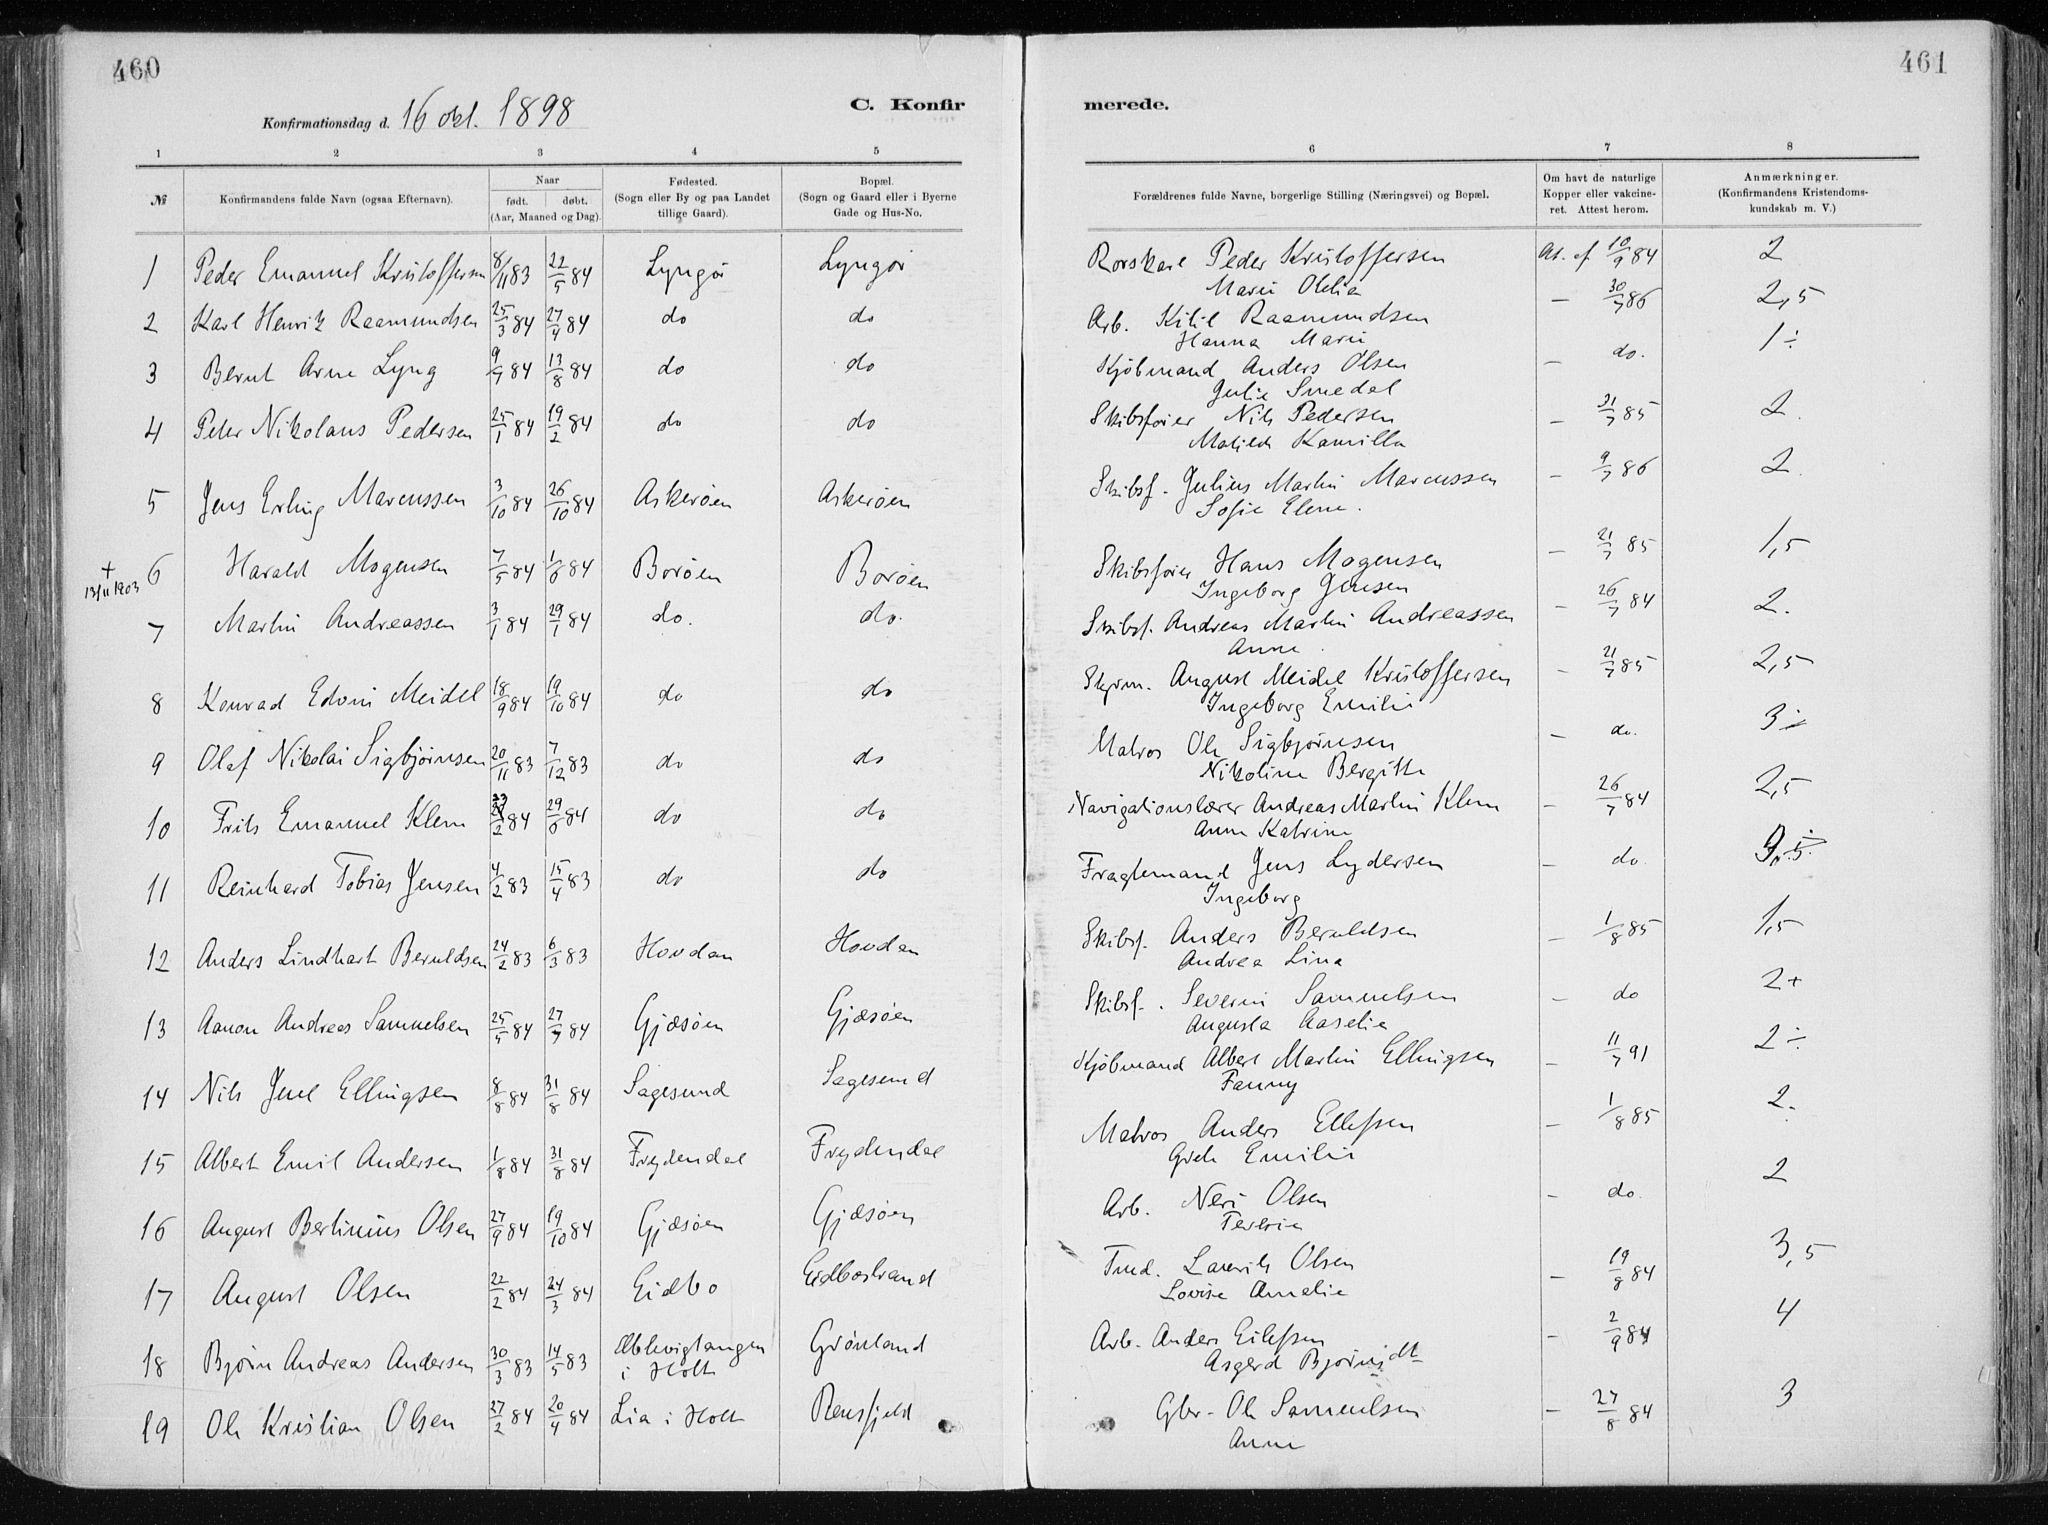 460
461
Konfirmationsdag d. 16 okt. 1898
C. Konfir
merede.
1 2 3 4 5 6 7 8
№
Konfirmandens fulde Navn (ogsaa Efternavn).
Naar
født. døbt.
(Aar, Maaned og Dag).
Fødested.
(Sogn eller By og paa Landet
tillige Gaard).
Bopæl.
(Sogn og Gaard eller i Byerne
Gade og Hus-No.
Forældrenes fulde Navne, borgerlige Stilling (Næringsvei) og Bopæl.
Om havt de naturlige
Kopper eller vakcine-
ret. Attest herom.
Anmærkninger.
(Konfirmandens Kristendoms-
kundskab m. V.)
1 Peder Emanuel Kristoffersen 8/11 83 22/5 84 Lyngør Lyngør Rorskarl Peder Kristoffersen At. af 10/9 84 2
Marie Olelia
2 Karl Henrik Raamundsen 25/3 84 27/4 84 do do Arb. Kitil Raamundsen – 30/7 86 2,5
Hanna Marie
3 Bernt Arne Lyng 9/7 84 13/8 84 do do Kjøbmand Anders Olsen – do. 1÷
Julie Smedal
4 Peter Nikolaus Pedersen 25/1 84 19/2 84 do do Skibsfører Nils Pedersen – 21/7 85 2.
Matilde Kamilla
5 Jens Erling Marcussen 3/10 84 26/10 84 Askerøen Askerøen Skibsf. Julius Martin Marcussen – 9/7 86 2.
Sofie Elene.
+ 13/11 1903
6 Harald Mogensen 7/5 84 1/6 84 Borøen Borøen Skibsfører Hans Mogensen – 21/7 85 1,5
Ingeborg Jensen
7 Martin Andreassen 3/1 84 29/1 84 do. do. Skibsf. Andreas Martin Andreassen – 26/7 84 2.
Anne.
8 Konrad Edvin Meidel 18/9 84 19/10 84 do do Styrm. August Meidel Kristoffersen – 21/7 85 2,5
Ingeborg Emilie
9 Olaf Nikolai Sigbjørnsen 20/11 83 7/12 83 do do Matros Ole Sigbjørnsen – do. 3÷
Nikoline Bergitte
10 Frits Emanuel Klem 23/2 84 29/6 84 do do Navigationslærer Andreas Martin Klem – 26/7 84 2,5
Anne Katrine
11 Reinhard Tobias Jensen 4/2 83 15/4 83 do do Fragtemand Jens Lydersen – do.
Ingeborg
12 Anders Lindhart Beruldsen 24/2 83 6/3 83 Hovdan Hovdan Skibsf. Anders Beruldsen – 1/8 85 1,5
Andrea Lina
13 Aanon Andreas Samuelsen 25/5 84 27/7 84 Gjæsøen Gjæsøen Skibsf. Severin Samuelsen – do 2+
Augusta Aaselie
14 Nils Juel Ellingsen 8/8 84 31/8 84 Sagesund Sagesund Kjøbmand Albert Martin Ellingsen – 11/7 91 2÷
Fanny
15 Albert Emil Andersen 1/8 84 31/8 84 Frydendal Frydendal Matros Anders Ellefsen – 1/8 85 2.
Grete Emilie
16 August Bertinius Olsen 27/9 84 19/10 84 Gjæsøen Gjæsøen Arb. Neri Olsen – do. 2
Teresia
17 August Olsen 22/2 84 24/3 84 Eidbo Eidbostrand Tmd. Laurits Olsen – 19/8 84 3,5
Lovise Amalie
18 Bjørn Andreas Andersen 30/3 83 14/5 83 Æblevigtangen Grønland Arb. Anders Eilefsen – 2/9 84 4
i Holt Asgerd Bjørnsdt
19 Ole Kristian Olsen 27/2 84 20/4 84 Lia i Holt Rensfjeld Gbr. Ole Samuelsen – 27/8 84 3
Anne